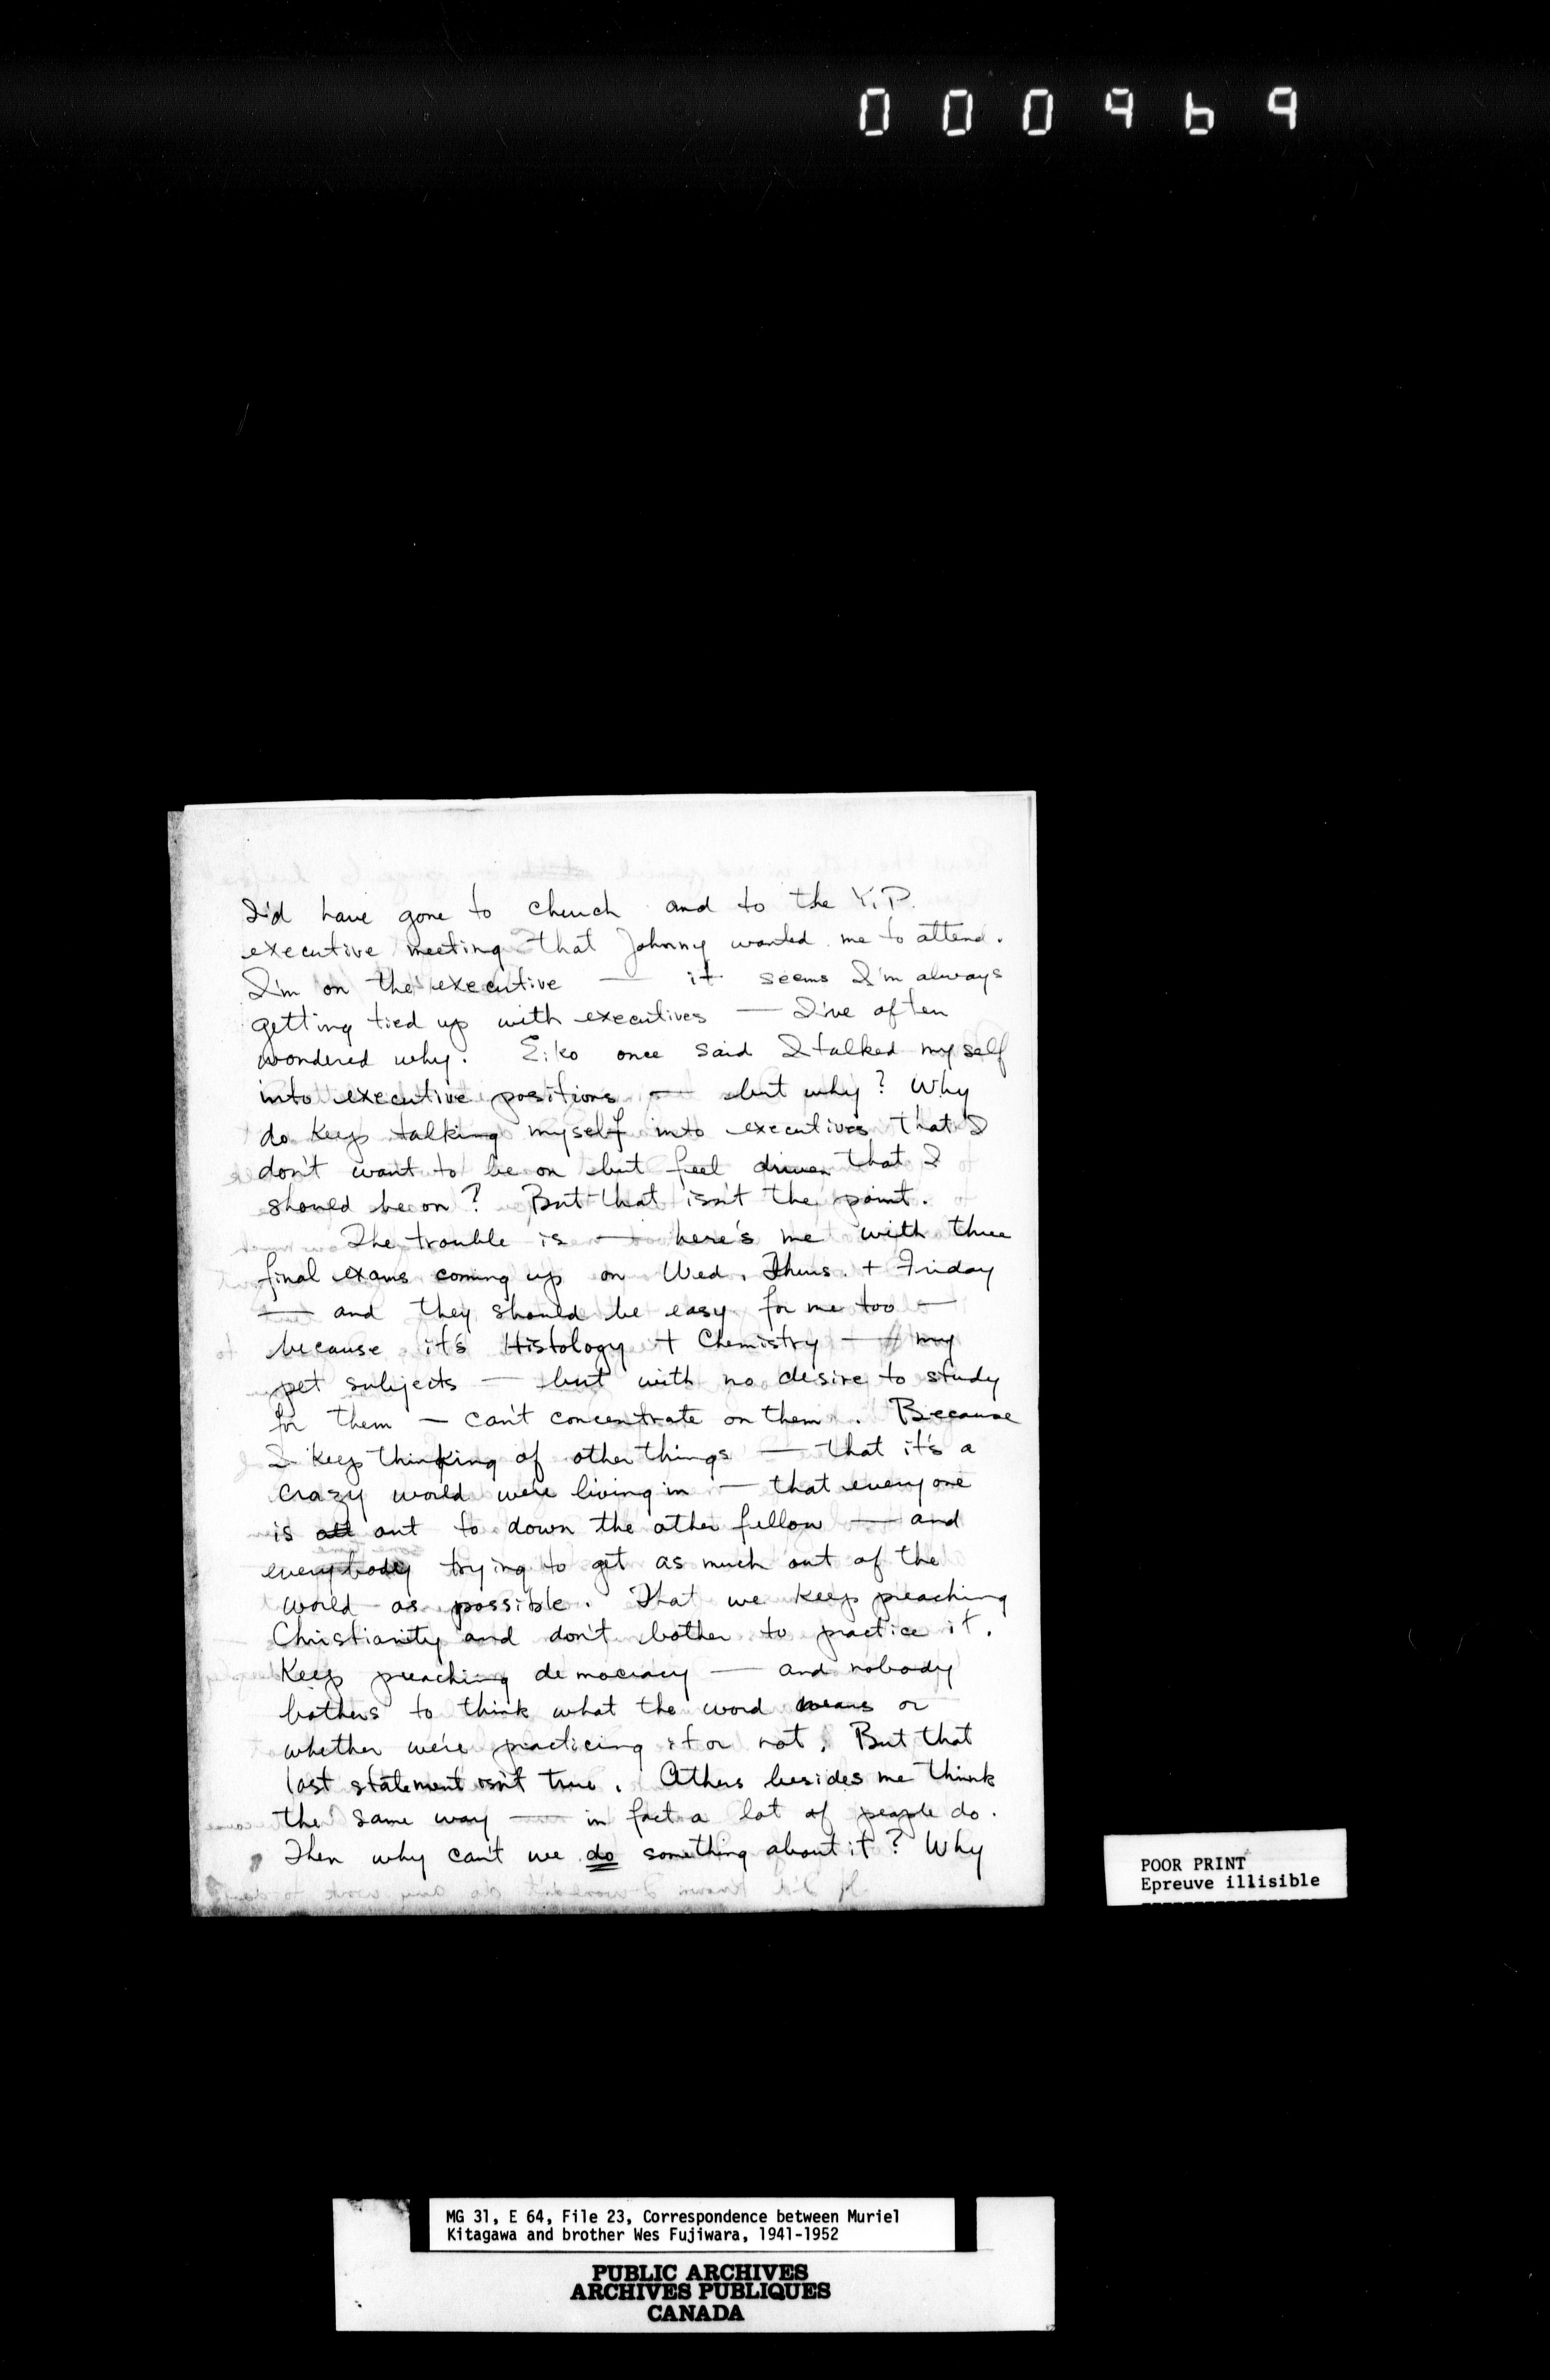 000969
I'd have gone to church and to the Y.P.
executive meeting that Johnny wanted me to attend.
I'm on the executive — it seems I'm always
getting tied up with executives — I've often
wondered why. Eiko once said I talked myself
into executive positions — but why? Why
do keep talking myself into executives that I
don't want to be on but feel driven that I
should be on? But that isn't the point.
The trouble is — here's me with three
final exams coming up on Wed. Thurs. + Friday
— and they should be easy for me too —
because it's Histology + Chemistry — my
pet subjects — but with no desire to study
for them — can't concentrate on them. Because
I keep thinking of other things — that it's a
crazy world we're living in — that everyone
is all out to down the other fellow — and
some
everybody trying to get as much out of the
world as possible. That we keep preaching
Christianity and don't bother to practice it.
Keep preaching democracy — and nobody
bothers to think what the word means or
whether we're practicing it or not. But that
last statement isn't true. Others besides me think
the same way — in fact a lot of people do.
Then why can't we do something about it? Why
POOR PRINT
Epreuve illisible
MG 31, E 64, File 23, Correspondence between Muriel
Kitagawa and brother Wes Fujiwara, 1941-1952
PUBLIC ARCHIVES
ARCHIVES PUBLIQUES
CANADA